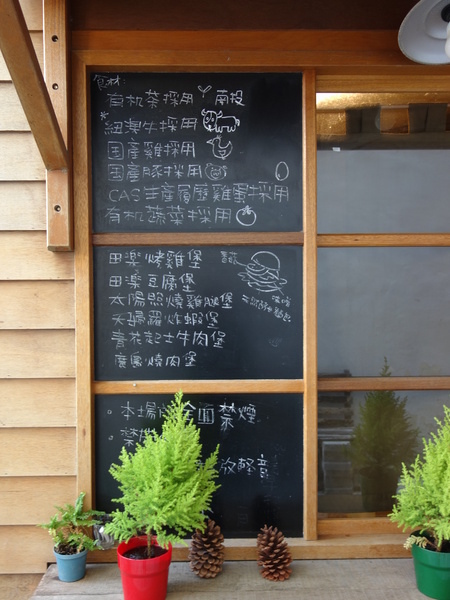 食材:
有机茶採用 南投
*紐澳牛採用
国産雞採用
国産豚採用
CAS生産履歷雞蛋採用
有机蔬菜採用
田楽烤雞堡
田楽豆腐堡
太陽照燒雞腿堡
天婦羅炸蝦堡
青花起士牛肉堡
廣島燒肉堡
本場 全面禁煙
禁
放軽音